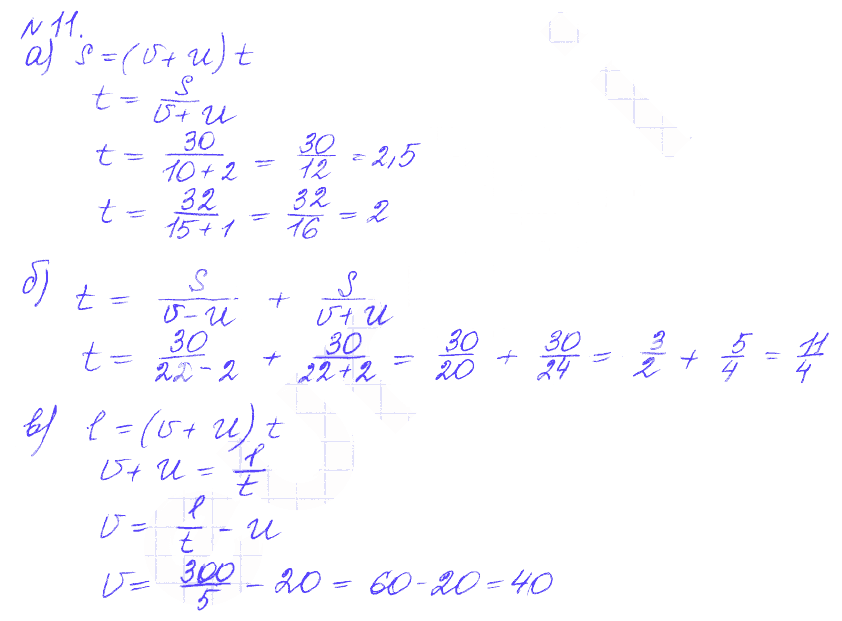 № 11.
а) s = (v + u) t
t = s/(v + u)
t = 30/(10 + 2) = 30/12 = 2,5
t = 32/(15 + 1) = 32/16 = 2
б) t = s/(v - u) + s/(v + u)
t = 30/(22 - 2) + 30/(22 + 2) = 30/20 + 30/24 = 3/2 + 5/4 = 11/4
в) l = (v + u) t
v + u = l/t
v = l/t - u
v = 300/5 - 20 = 60 - 20 = 40